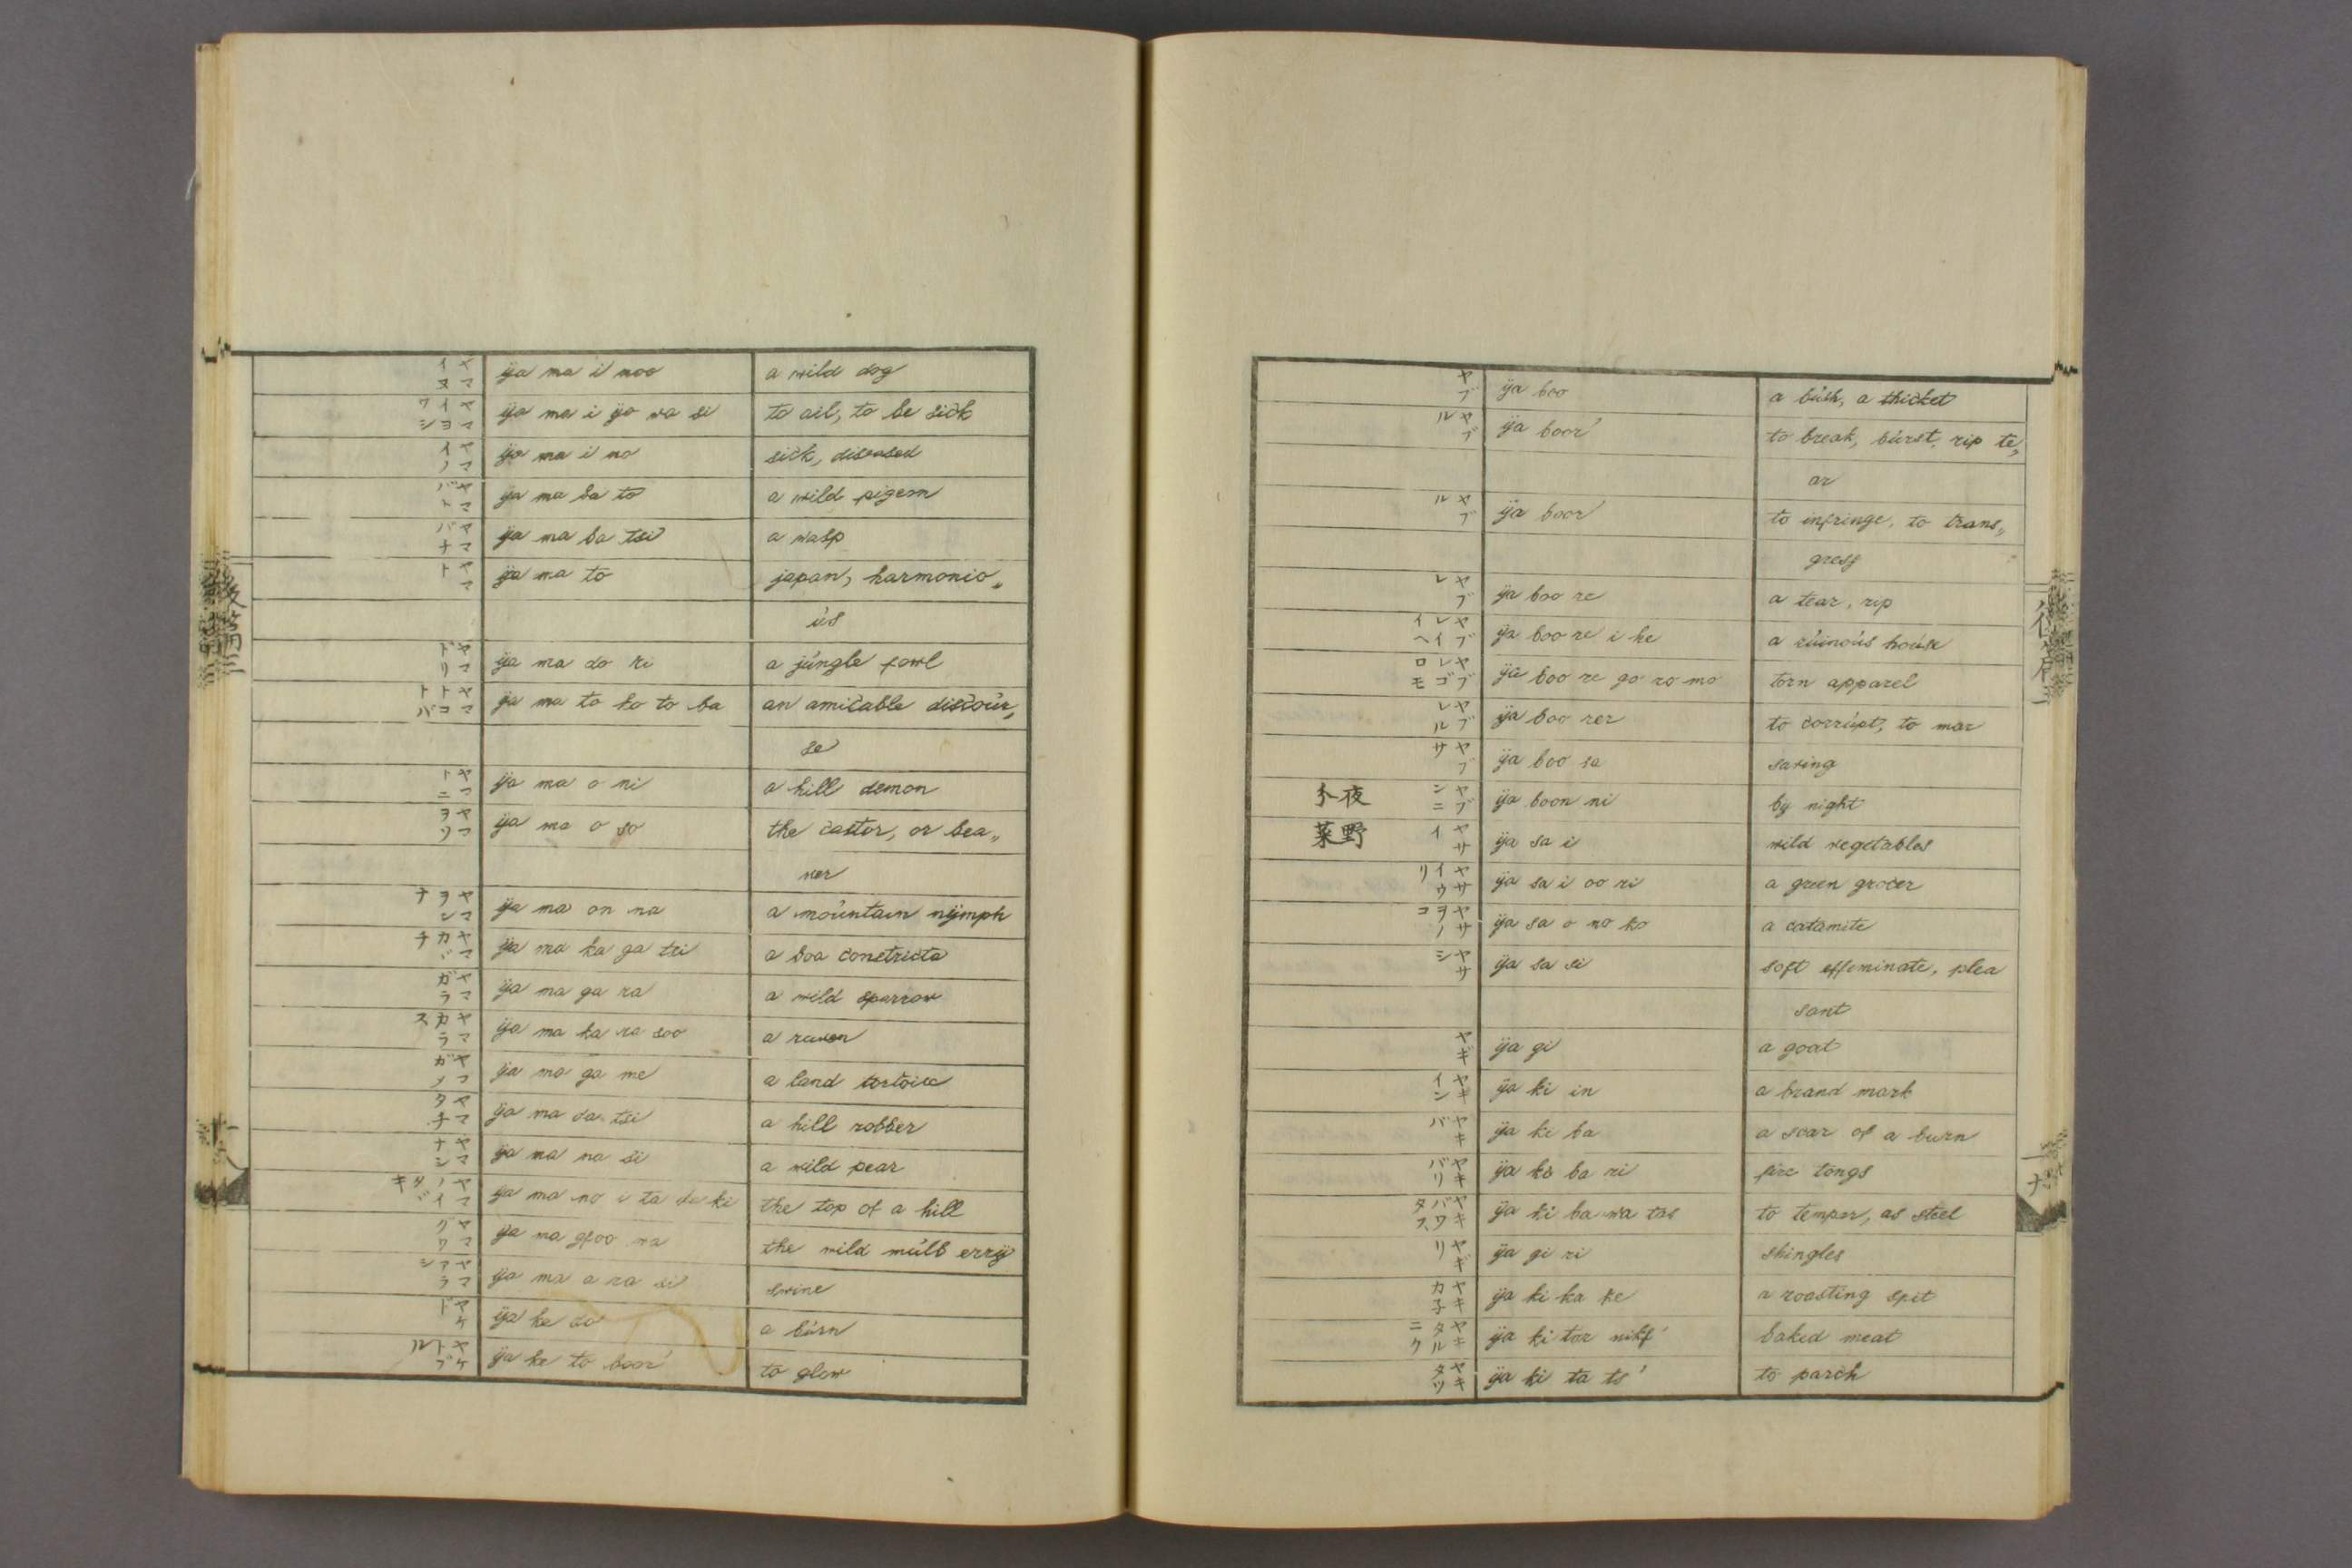 ヤマイヌ ÿa ma i noo a wild dog
ヤマイヨワシ ÿa ma i ÿo wa si to ail, to be sick
ヤマイノ ÿa ma i no sick, diseased
ヤマバト ÿa ma ba to a wild pigeon
ヤマバチ ÿa ma ba tsi a wasp
ヤマト ÿa ma to japan, harmonio„
ús
ヤマドリ ÿa ma do ri a júngle fowl
ヤマトコトバ ÿa ma to ko to ba an amicable discoúr„
se
ÿa ma o ni a hill demon
ヤマヲソ ÿa ma o so the castor, or bea„
ver
ヤマヲンナ ÿa ma on na a moúntain nÿmph
ÿa ma ka ga tsi a boa constricta
ヤマガラ ÿa ma ga ra a wild sparrow
ヤマカラス ÿa ma ka ra soo a raven
ヤマガメ ÿa ma ga me a land tortoise
ヤマダチ ÿa ma da tsi a hill robber
ヤマナシ ÿa ma na si a wild pear
ÿa ma no i ta da ki the top of a hill
ヤマグワ the wild múlb errÿ
ヤマアラシ ÿa ma a ra si swine
ヤケド ÿa ke do a búrn
ヤケトブル ÿa ke to boor' to glow
ヤブ ÿa boo a búsh, a thicket
ヤブル ÿa boor' to break, búrst, rip te„
ar
ヤブル ÿa boor' to infringe, to trans„
gress
ヤブレ ÿa boo re a tear, rip
ヤブレイイヘ ÿa boo re i he a rúinoús hoúse
ヤブレゴロモ ÿa boo re go ro mo torn apparel
ヤブレル ÿa boo rer to corrúpt, to mar
ヤブサ ÿa boo sa saving
ヤブンニ ÿa boon ni by night
野菜 ヤサイ ÿa sa i wild vegetables
ヤサイウリ ÿa sa i oo ri a green grocer
ヤサヲノコ ÿa sa o no ko a catamite
ヤサシ ÿa sa si soft effeminate, plea
sant
ヤギ ÿa gi a goat
ヤキイン ÿa ki in a brand mark
ヤキバ ÿa ki ba a scar of a burn
ヤキバリ ÿa ki ba ri fire tongs
ヤキバワタス ÿa ki ba wa tas to temper, as steel
ヤギリ ÿa gi ri shingles
ヤキカ子 ÿa ki ka ke a roasting spit
ヤキタルニク ÿa ki tar nikf' baked meat
ヤキタツ ÿa ki ta ts' to parch